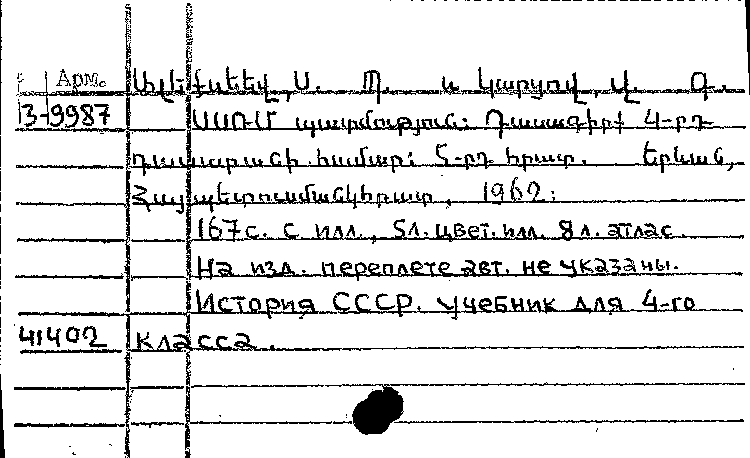 Арм. Ալեքսեեվ, Ս. Պ. և Կարցով, Վ. Գ.
3-9987 ՍՍՌՄ պատմություն: Դասագիրք 4-րդ
դասարանի համար: 5-րդ հրատ. Երևան,
Հայպետուսմանկհրատ, 1962:
167 с. с илл., 5 л. цвет. илл. 8 л. атлас.
На изд. переплете авт. не указаны.
История СССР. Учебник для 4-го
41402 класса.